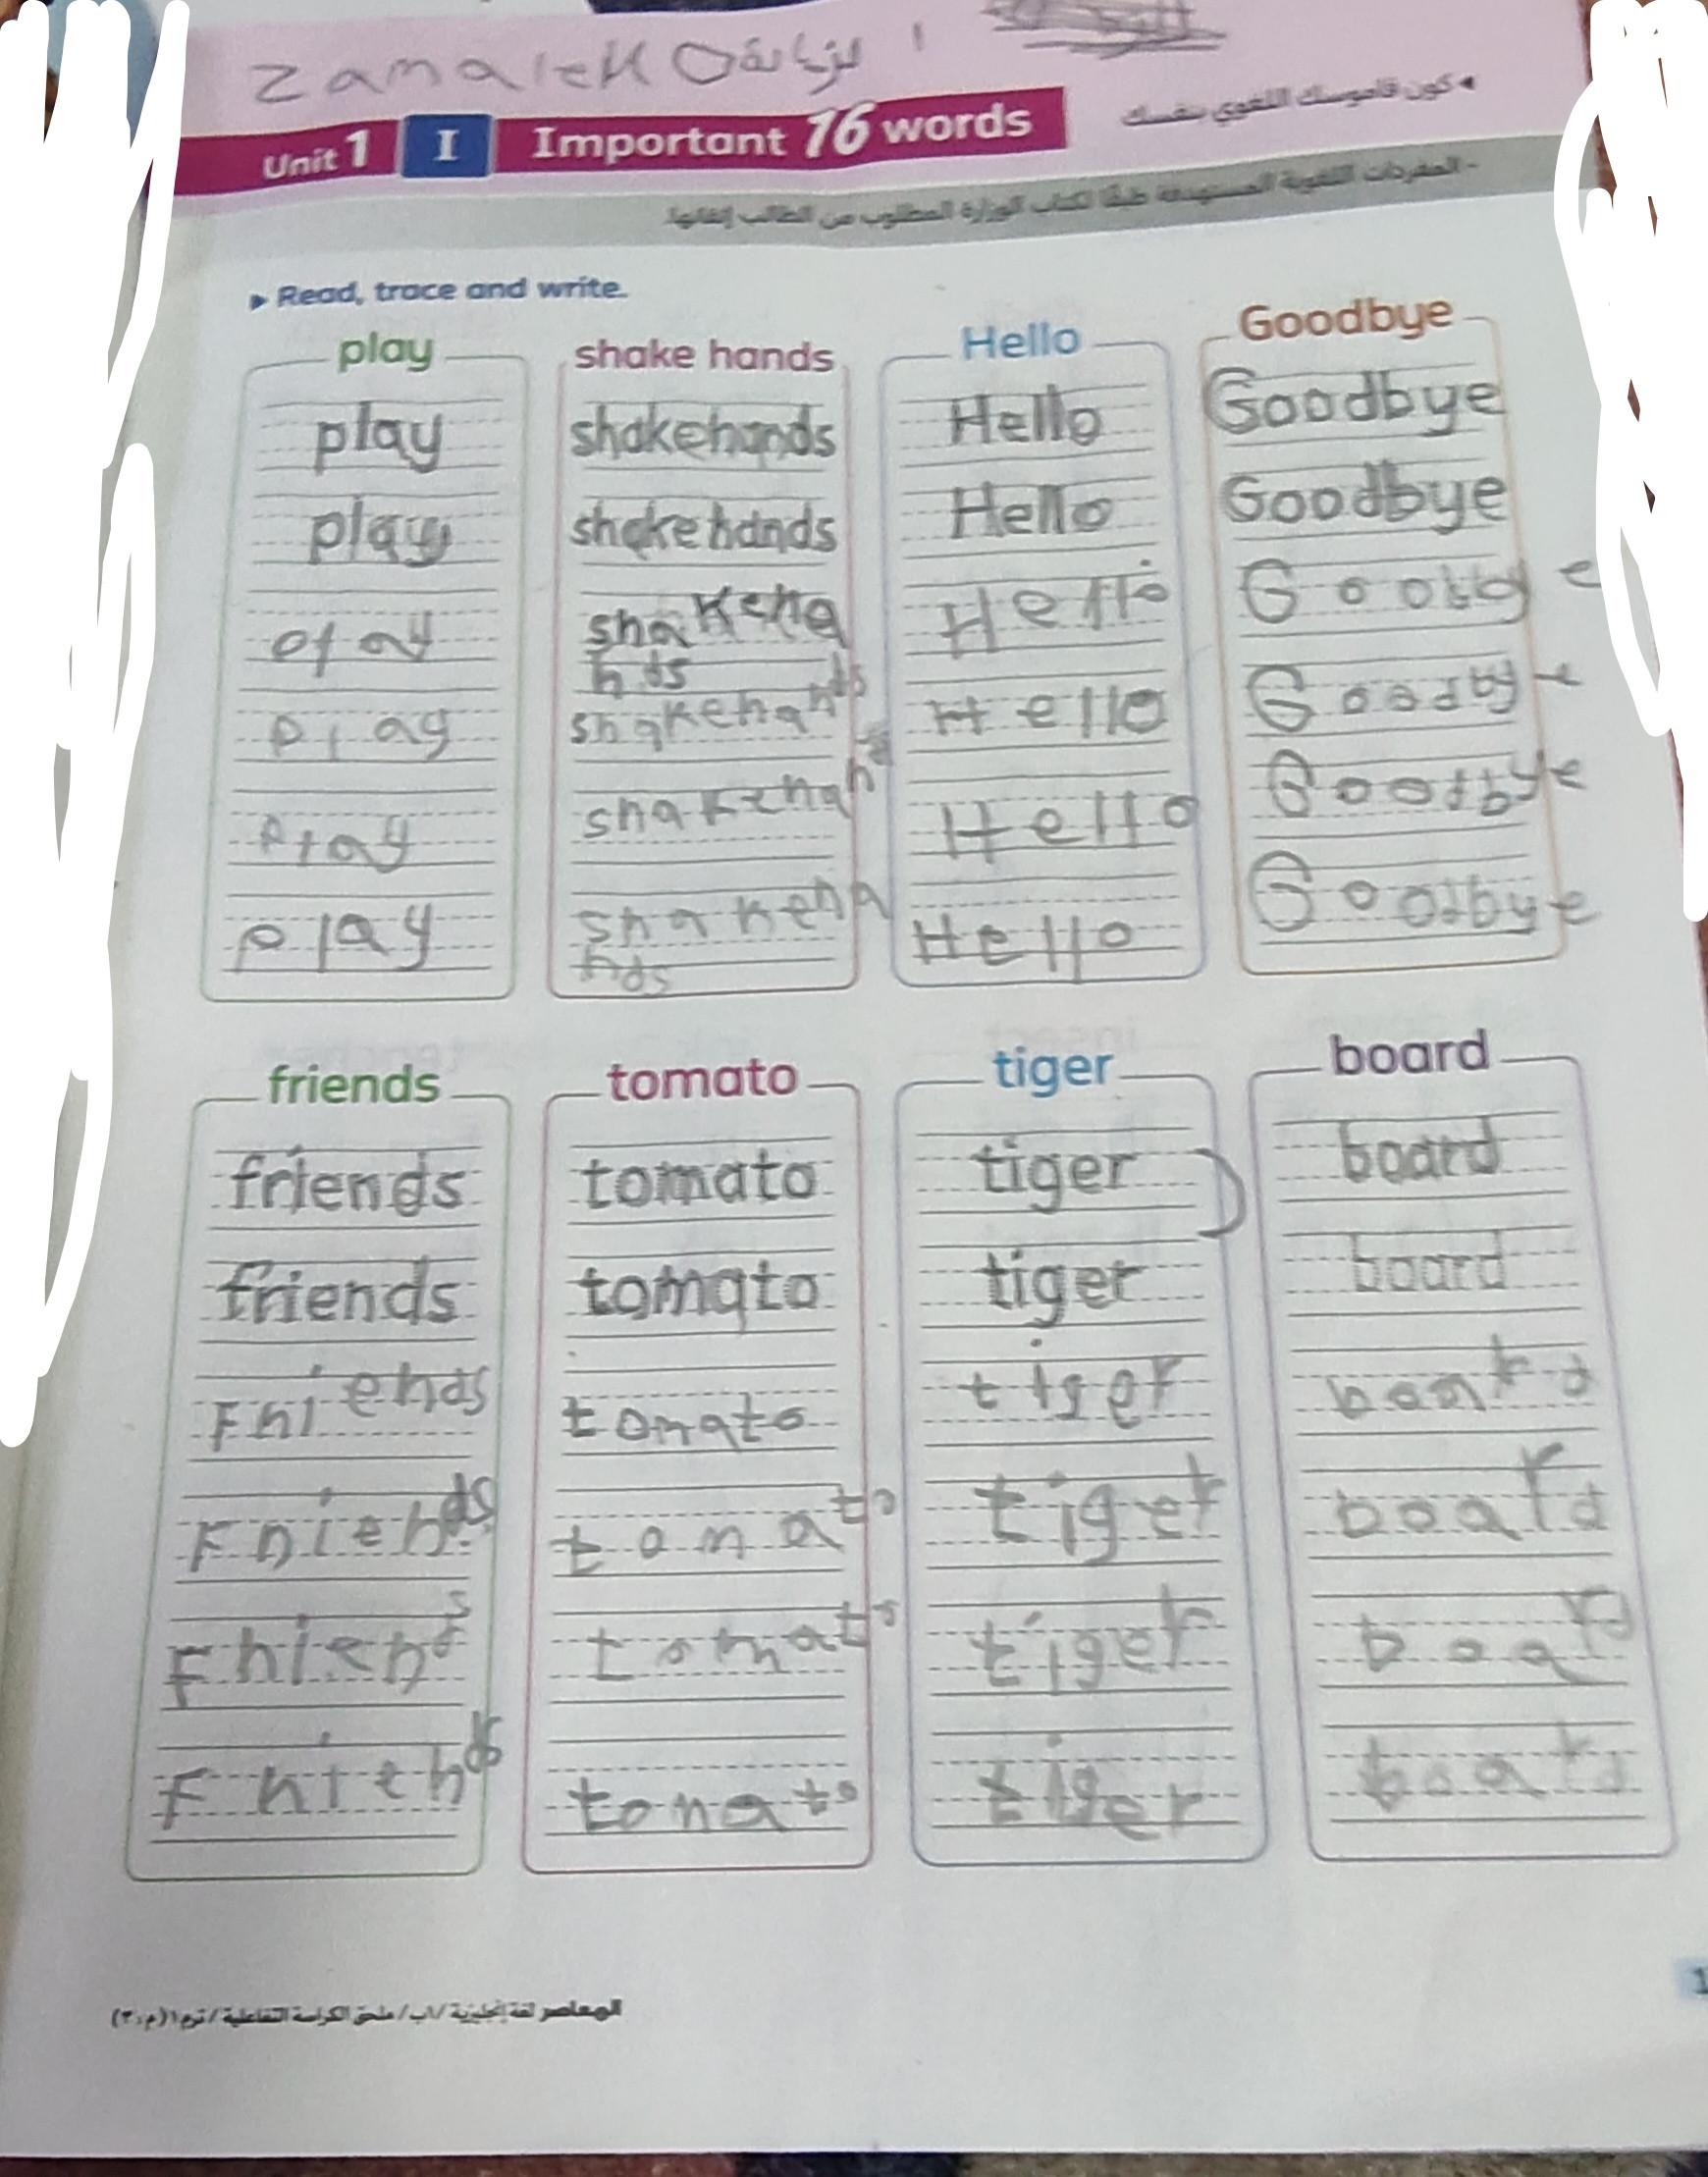 Zamalek
◂ كون قاموسك اللغوي بنفسك
Unit 1 I Important 16 words
- المفردات اللغوية المستهدفة طبقًا لكتاب الوزارة المطلوب من الطالب إتقانها.
▸ Read, trace and write.
play
play
play
play
play
play
shake hands
shake hands
shake hands
shakeha
nds
shakehands
shakehan
shakeha
nds
Hello
Hello
Hello
Hello
Hello
Hello
Hello
Goodbye
Goodbye
Goodbye
Goodbye
Goodbye
Goodbye
friends
friends
friends
Fhiends
Fhiends
Fhiends
Fhiends
tomato
tomato
tomato
tomato
tomato
tomato
tonato
tiger
tiger
tiger
tiger
tiger
tiger
tiger
board
board
board
board
board
board
board
المعاصر لغة إنجليزية /١ب/ ملحق الكراسة التفاعلية / ترم١ (م : ٣)
1